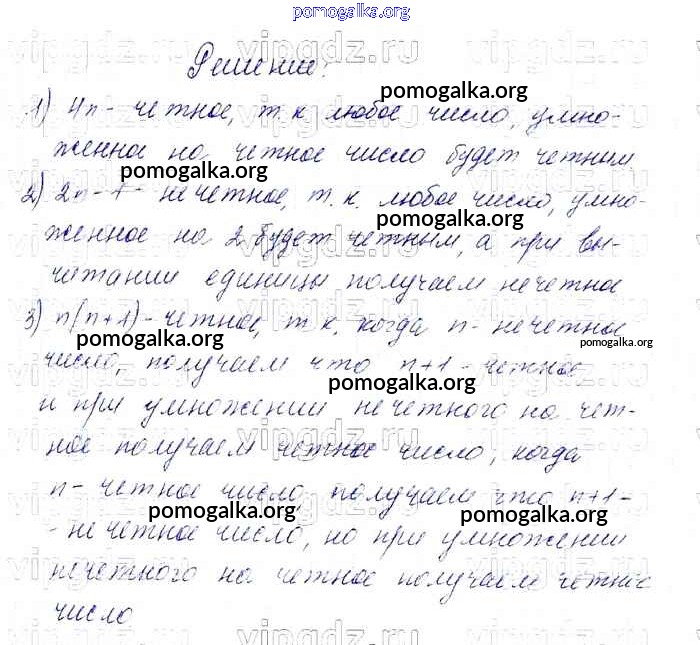 pomogalka.org
vipgdz.ru vipgdz.ru
Решение:
pomogalka.org
1) 4n - четное, т.к любое число, умно-
женное на четное число будет четным
pomogalka.org
vipgdz.ru vipgdz.ru
2) 2n-1 - нечетное, т.к. любое число, умно-
pomogalka.org
женное на 2 будет четным, а при вы-
читании единицы получаем нечетное
3) n(n+1) - четное, т.к. когда n - нечетное
pomogalka.org
pomogalka.org
число, получаем что n+1 - четное
pomogalka.org
и при умножении нечетного на чет-
ное получаем четное число, когда
n - четное число, получаем что n+1 -
pomogalka.org
pomogalka.org
- нечетное число, но при умножении
нечетного на четное получаем четное
число